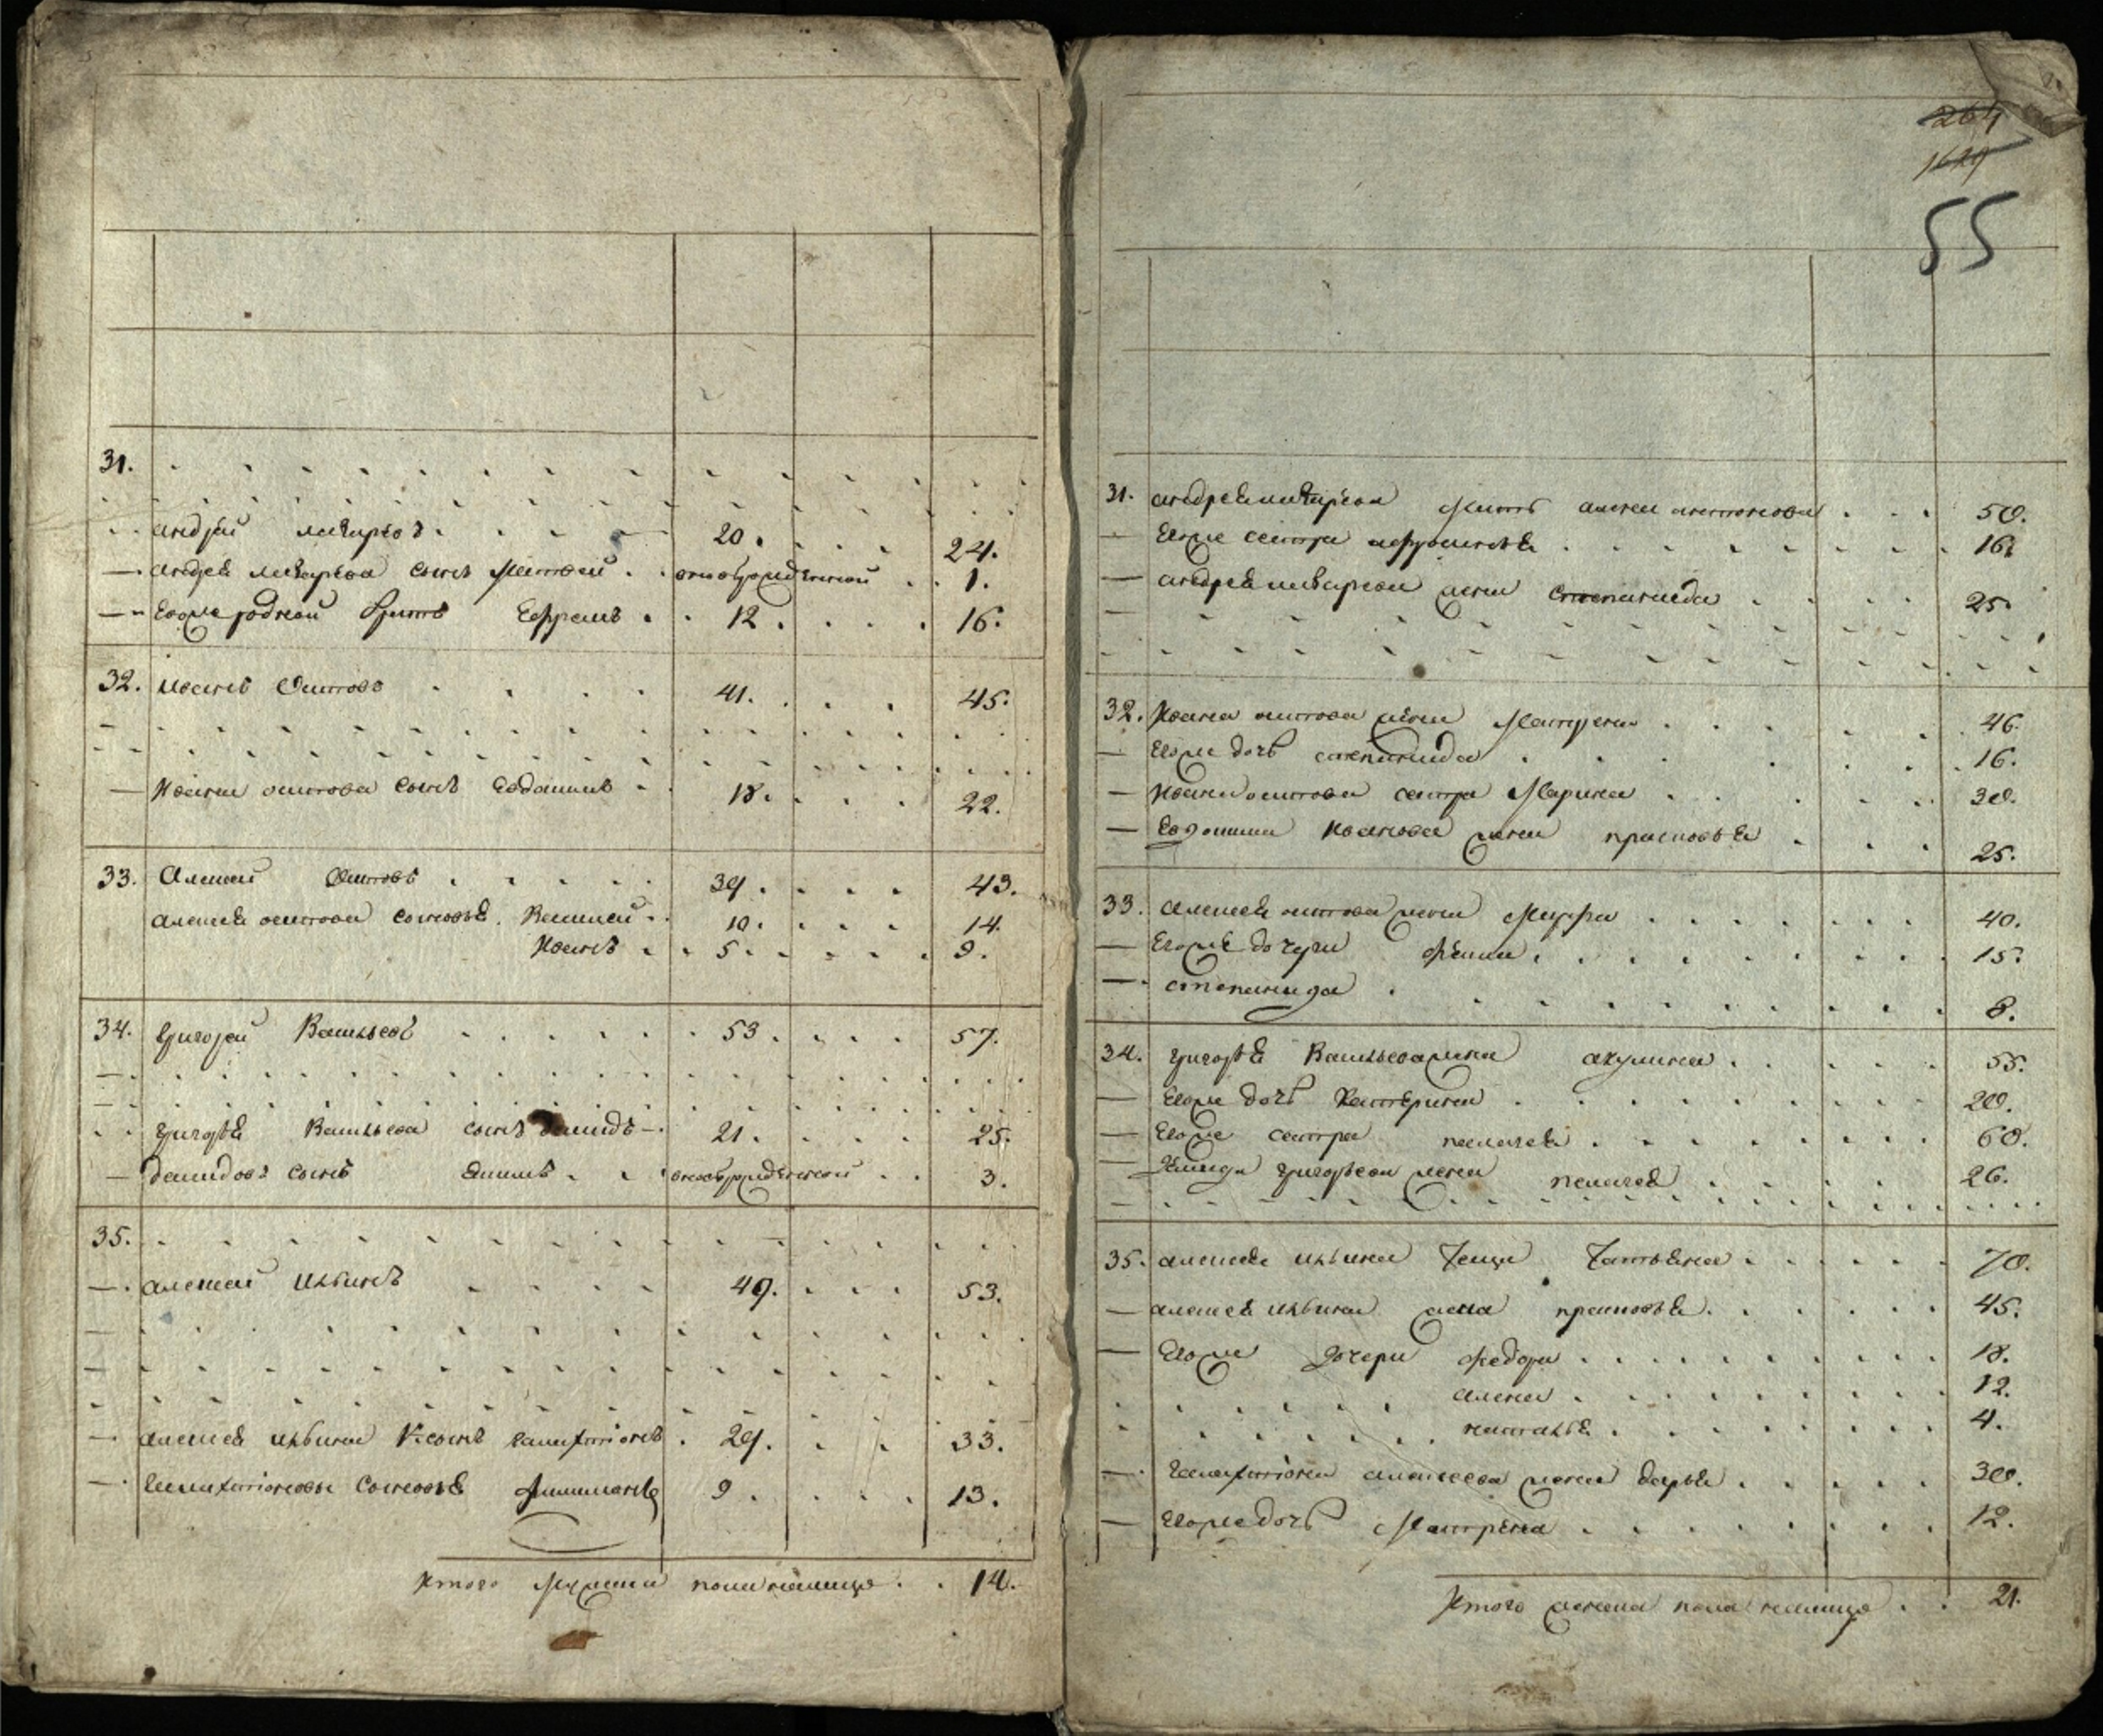 31.
андрей макаровъ 20. 24.
андрея макарова сынъ Матвей новорожденной 1.
Егоже родной братъ Ефремъ 12. 16.
32. Иванъ Осиповъ 41. 45.
Ивана осипова сынъ Евдокимъ 18. 22.
33. Алексей Осиповъ 39. 43.
алексея осипова сыновья Василей 10. 14.
Иванъ 5. 9.
34. Григорей Васильевъ 53. 57.
григорья Васильева сынъ Демидъ 21. 25.
демидовъ сынъ новорожденной 3.
35.
алексей Ильинъ 49. 53.
алексея ильина сынъ галахтіонъ 29. 33.
галахтіоновы сыновья 9. 13.
Итого мужеска пола налицо 14.
264
1629
55
31. андрея макарова мать анна 50.
Егоже сестра афросинья 16.
андрея макарова жена степанида 25.
32. Ивана осипова жена Матрена 46.
Егоже дочь степанида 16.
Ивана осипова сестра Марина 30.
Евдокима Иванова жена прасковья 25.
33. алексея осипова жена Марфа 40.
Егоже дочери 15.
степанида 8.
34. григорья Васильева жена акулина 55.
Егоже дочь Катерина 20.
Егоже сестра пелагея 60.
Демида григорьева жена пелагея 26.
35. алексея ильина теща Татьяна 70.
алексея ильина жена прасковья 45.
Егоже дочери федора 18.
алена 12.
наталья 4.
галахтіона алексеева жена дарья 30.
Егоже дочь Матрена 12.
Итого женска пола налицо 21.